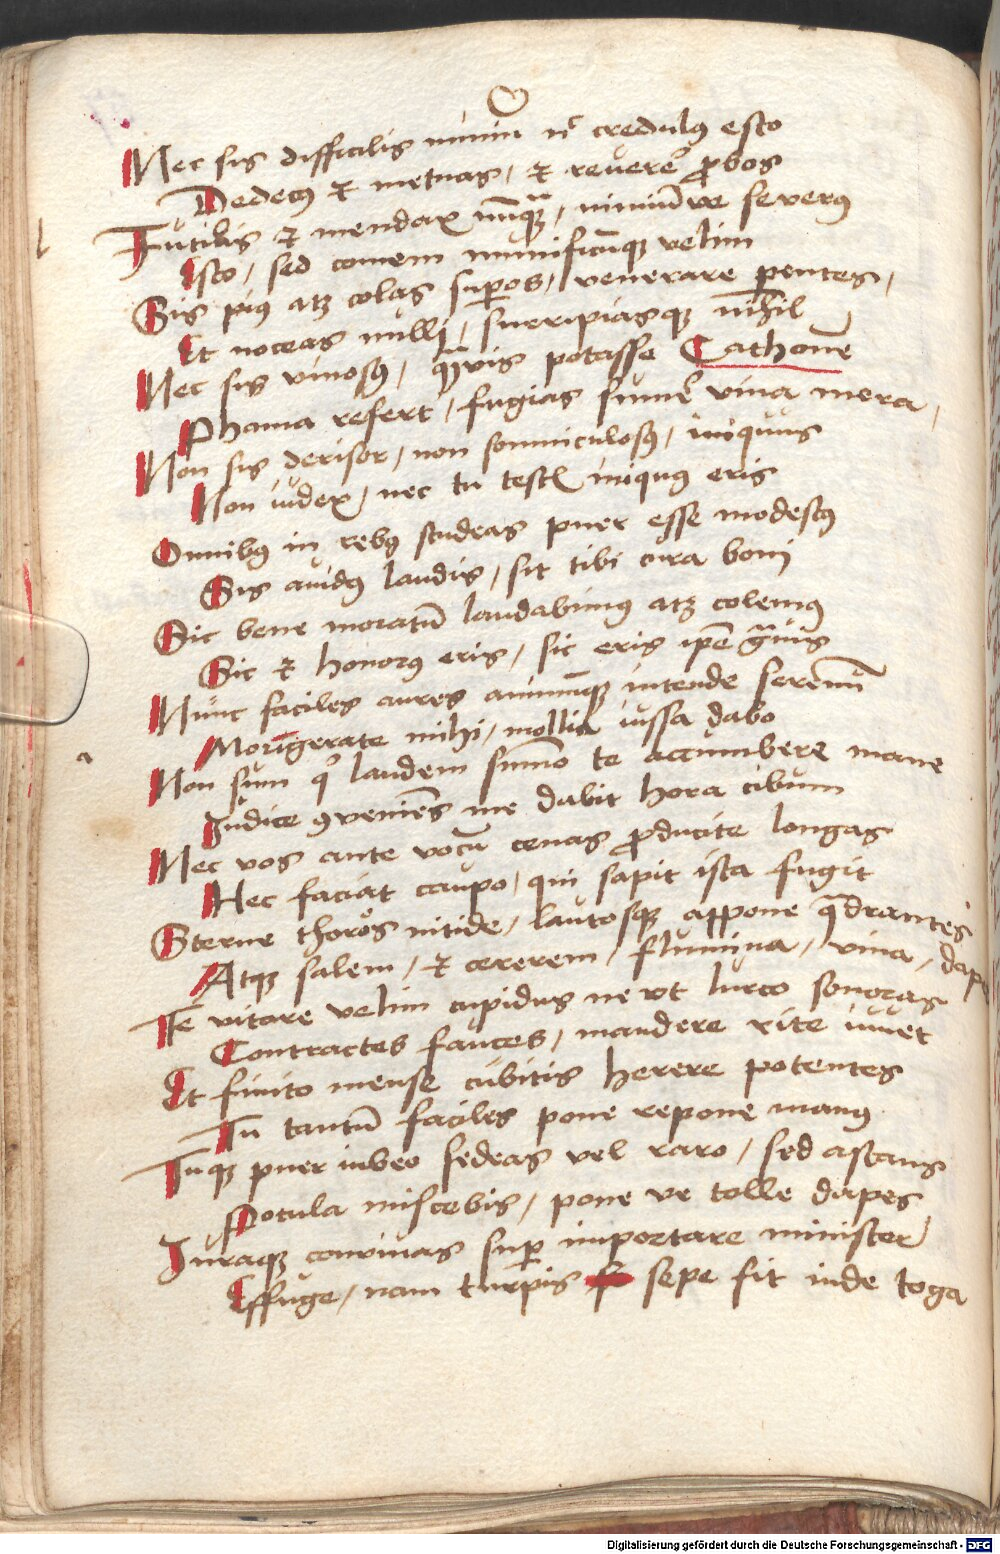 Nec sis difficilis nimiu nec credulus esto
Dedecus et metuas, et revere probos
Futilis et mendax nunquam, nimiumve severus
Esto, sed comem munificumque velim
Sis pius atque colas superos, venerare parentes,
Et noceas nulli, surripiasque nihil
Nec sis vinosus, quamvis potasse Cathonem
Phama refert, fugias sumere vina mera,
Non sis derisor, non somniculosus, iniquus
Non iudex, nec tu testis iniquus eris
Omnibus in rebus studeas puer esse modestus
Sis avidus laudis, sit tibi cura boni
Sic bene moratum laudabimus atque colemus
Sic et honorus eris, sic eris ipse gravis
Nunc faciles aures animumque intende serenum
Morigerate mihi, mollia iussa dabo
Non sum qui laudem summo te accumbere mane
Iudice conveniens me dabit hora cibum
Nec vos ante vocum cenas producite longas
Hec faciat caupo, qui sapit ista fugit
Sterne thoros nitide, lautosque appone quadrantes
Atque salem, et cererem, flumina, vina, dapes
Te vitare velim cupidus ne ut lurco sonoras
Contractes fauces, mandere rite iuvet
Et finito mense cubitis herere potentes
Tu tantum faciles pone repone manus
Tuque puer iubeo sedeas vel raro, sed astans
Potula miscebis, pone ve tolle dapes
Iuraque convivas super importare minister
Effuge, nam turpis sepe fit inde toga
Digitalisierung gefördert durch die Deutsche Forschungsgemeinschaft - DFG